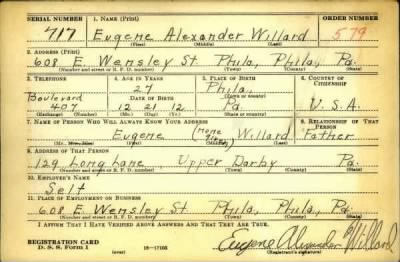 SERIAL NUMBER 1. NAME (Print) ORDER NUMBER
717 Eugene Alexander Willard 579
(First) (Middle) (Last)
2. ADDRESS (Print)
608 E. Wensley St. Phila, Phila, Pa.
(Number and street or R. F. D. number) (Town) (County) (State)
3. TELEPHONE 4. AGE IN YEARS 5. PLACE OF BIRTH 6. COUNTRY OF CITIZENSHIP
27 Phila,
Boulevard DATE OF BIRTH (Town or county)
407 12 21 12 Pa. U.S.A.
(Exchange) (Number) (Mo.) (Day) (Yr.) (State or country)
7. NAME OF PERSON WHO WILL ALWAYS KNOW YOUR ADDRESS 8. RELATIONSHIP OF THAT PERSON
Eugene (none given) Willard Father
(Mr., Mrs., Miss) (First) (Middle) (Last)
9. ADDRESS OF THAT PERSON
129 Long Lane, Upper Darby Pa.
(Number and street or R. F. D. number) (Town) (County) (State)
10. EMPLOYER'S NAME
Self
11. PLACE OF EMPLOYMENT OR BUSINESS
608 E. Wensley St. Phila, Phila, Pa.
(Number and street or R. F. D. number) (Town) (County) (State)
I AFFIRM THAT I HAVE VERIFIED ABOVE ANSWERS AND THAT THEY ARE TRUE.
REGISTRATION CARD
D. S. S. Form 1 (over) 16—17105 Eugene Alexander Willard
(Registrant's signature)